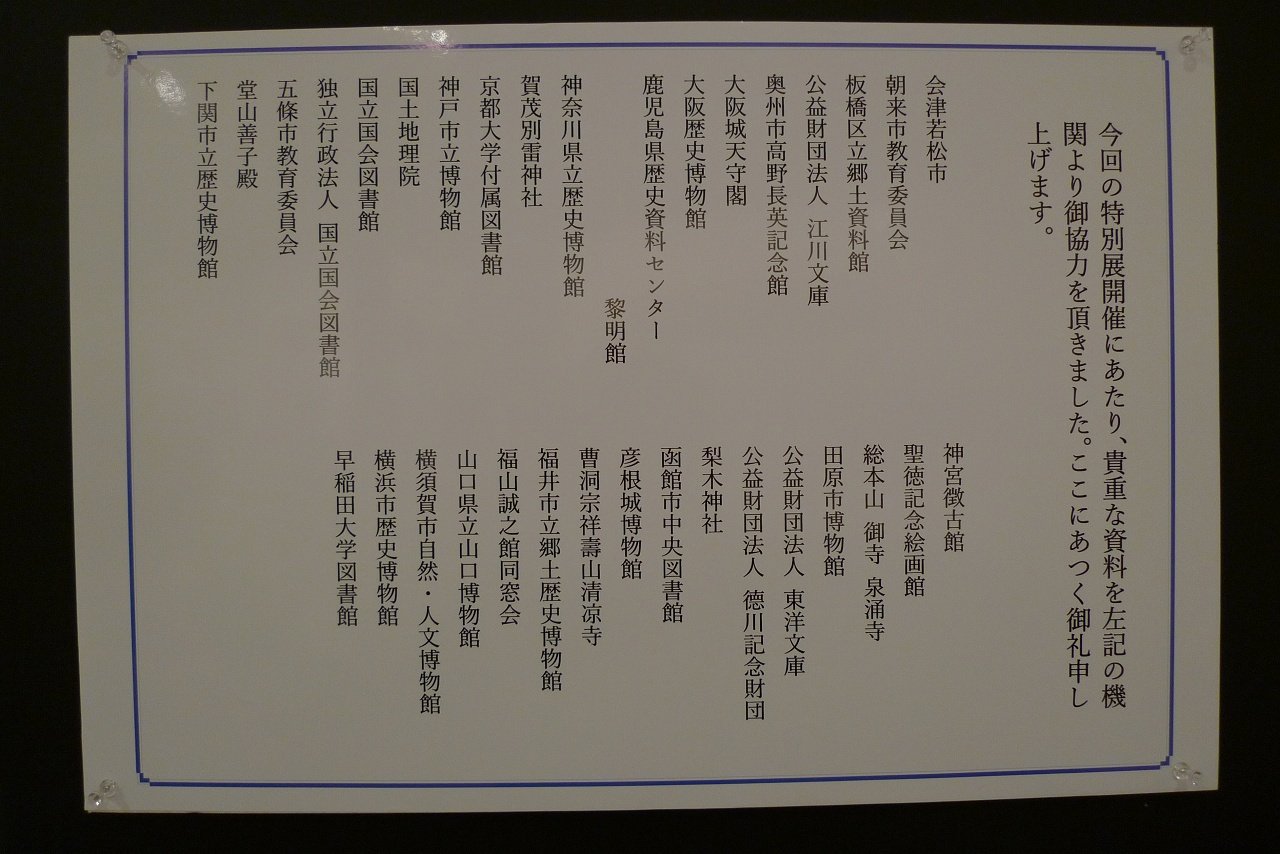 今回の特別展開催にあたり、貴重な資料を左記の機
関より御協力を頂きました。ここにあつく御礼申し
上げます。
会津若松市
朝来市教育委員会
板橋区立郷土資料館
公益財団法人 江川文庫
奥州市高野長英記念館
大阪城天守閣
大阪歴史博物館
鹿児島県歴史資料センター
黎明館
神奈川県立歴史博物館
賀茂別雷神社
京都大学付属図書館
神戸市立博物館
国土地理院
国立国会図書館
独立行政法人 国立国会図書館
五條市教育委員会
堂山善子殿
下関市立歴史博物館
神宮徴古館
聖徳記念絵画館
総本山 御寺 泉涌寺
田原市博物館
公益財団法人 東洋文庫
公益財団法人 德川記念財団
梨木神社
函館市中央図書館
彦根城博物館
曹洞宗祥壽山清凉寺
福井市立郷土歴史博物館
福山誠之館同窓会
山口県立山口博物館
横須賀市自然・人文博物館
横浜市歴史博物館
早稲田大学図書館